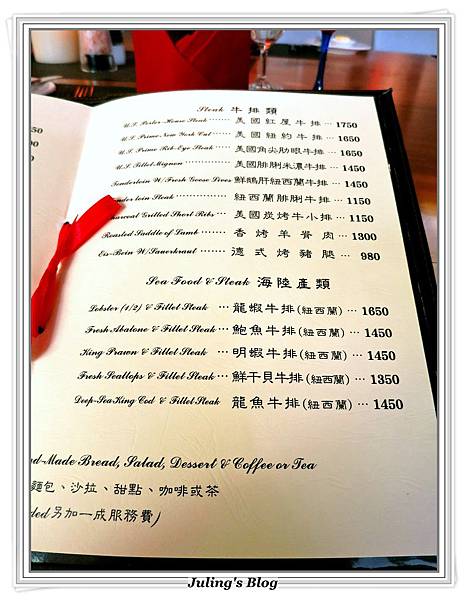 Steak 牛排類
U.S. Porter House Steak 美國紅屋牛排 1750
U.S. Prime New York Cut 美國紐約牛排 1650
U.S. Prime Rib-Eye Steak 美國角尖肋眼牛排 1650
U.S. Fillet Mignon 美國腓脷米濃牛排 1450
Tenderloin W/Fresh Goose Lives 鮮鵝肝紐西蘭牛排 1450
loin Steak 紐西蘭腓脷牛排 1150
Charcoal Grilled Short Ribs 美國炭烤牛小排 1150
Roasted Saddle of Lamb 香烤羊脊肉 1300
Eis-Bein W/Sauerkraut 德式烤豬腿 980
Sea Food & Steak 海陸產類
Lobster (1/2) & Fillet Steak 龍蝦牛排(紐西蘭) 1650
Fresh Abalone & Fillet Steak 鮑魚牛排(紐西蘭) 1450
King Prawn & Fillet Steak 明蝦牛排(紐西蘭) 1450
Fresh Scallops & Fillet Steak 鮮干貝牛排(紐西蘭) 1350
Deep-Sea King Cod & Fillet Steak 龍魚牛排(紐西蘭) 1450
nd-Made Bread, Salad, Dessert & Coffee or Tea
麵包、沙拉、甜點、咖啡或茶
ded另加一成服務費)
Juling's Blog